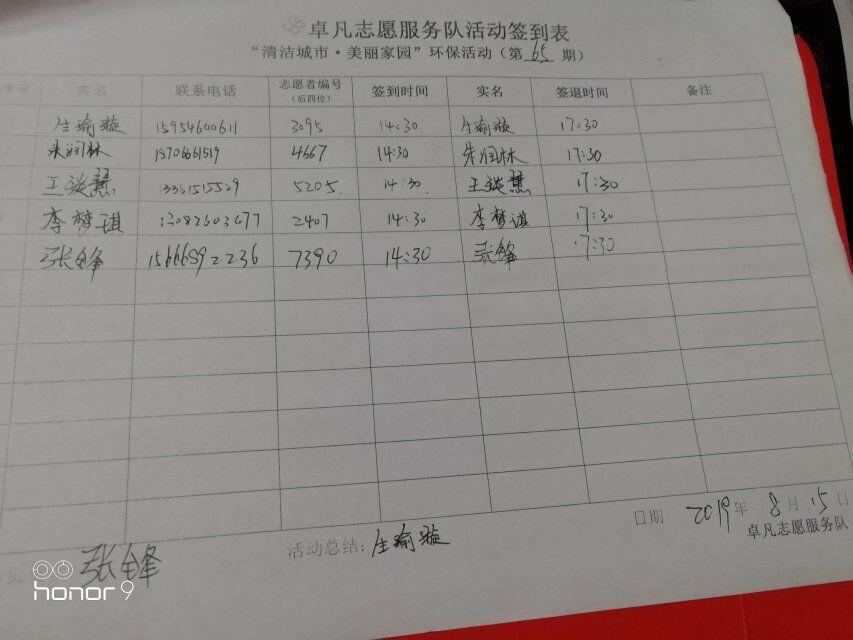 卓凡志愿服务队活动签到表
“清洁城市·美丽家园”环保活动(第65期)
序号 实名 联系电话 志愿者编号(后四位) 签到时间 实名 签退时间 备注
庄瑜璇 15954600611 3095 14:30 庄瑜璇 17:30
朱润林 18706661519 4667 14:30 朱润林 17:30
王谈慧 13361515529 5205 14:30 王谈慧 17:30
李梦琪 13082603677 2407 14:30 李梦琪 17:30
张锋 15666892236 7390 14:30 张锋 17:30
张锋 活动总结:庄瑜璇 日期 2019年8月15日
卓凡志愿服务队
honor 9